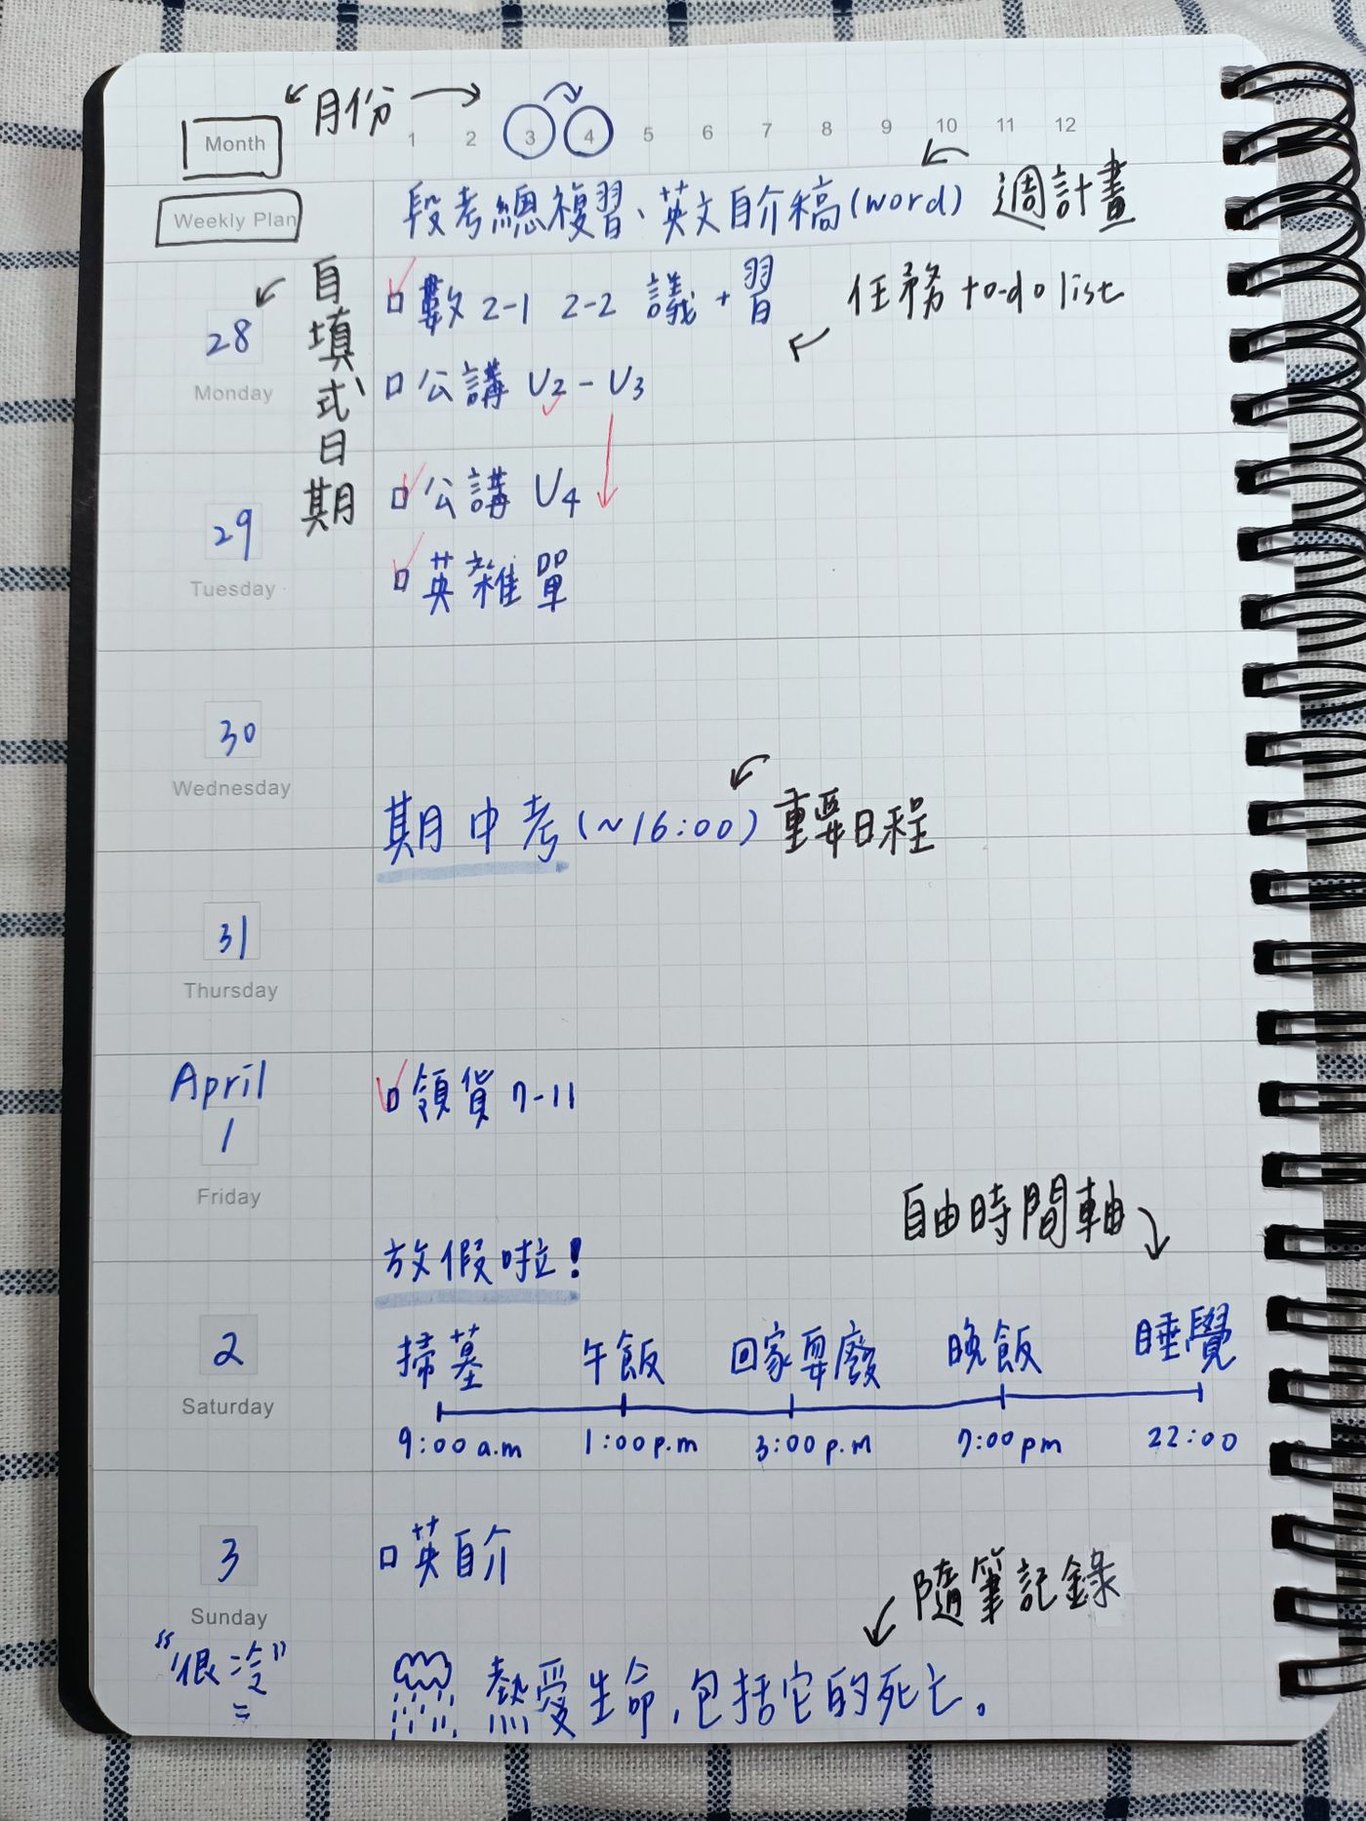 Month 月份 1 2 3 4 5 6 7 8 9 10 11 12
Weekly Plan 段考總複習、英文自介稿(word) 週計畫
自填式日期
數 2-1 2-2 議+習 任務 to-do list
28
Monday
公講 U2-U3
公講 U4
29
Tuesday
英雜單
30
Wednesday
期中考(~16:00) 重要日程
31
Thursday
April
1
Friday
領貨 7-11
自由時間軸
放假啦!
2
Saturday
掃墓 午飯 回家耍廢 晚飯 睡覺
9:00 a.m 1:00 p.m 3:00 p.m 7:00 pm 22:00
3
Sunday
英自介
隨筆記錄
"很冷"
熱愛生命,包括它的死亡。